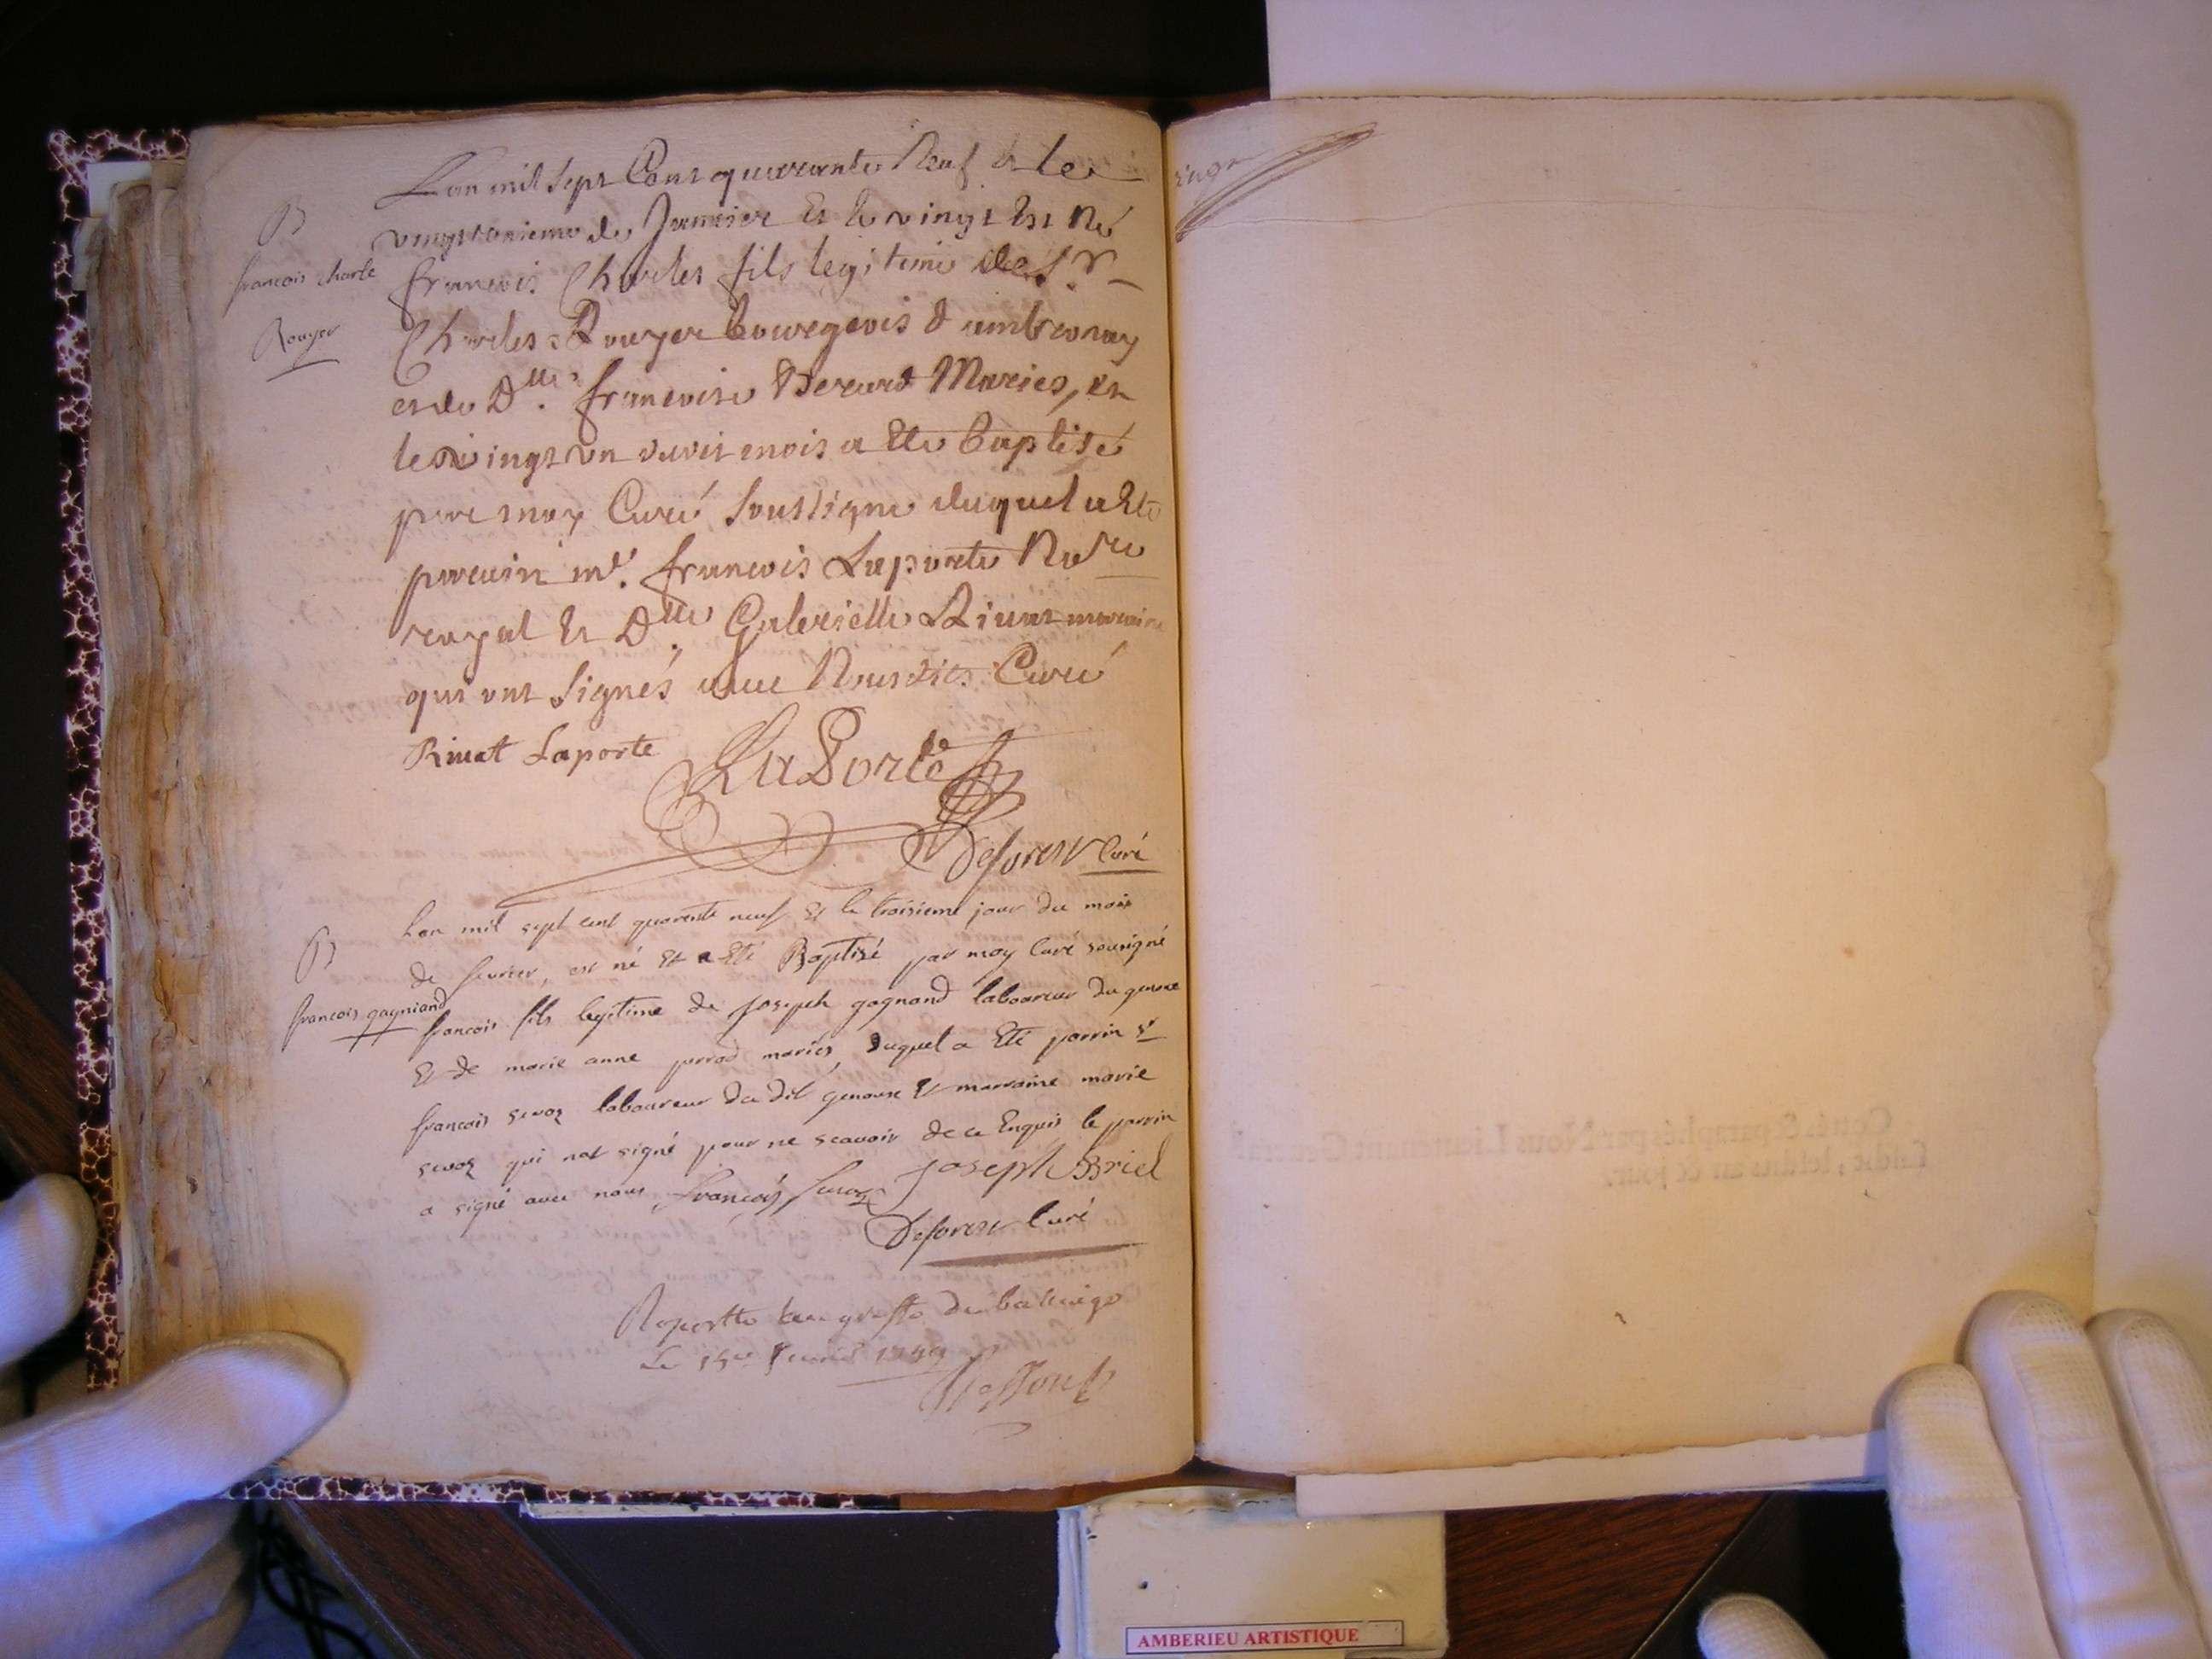 B
françois charle
Rouyer
L'an mil sept Cent quarante Neuf et le
vingtunieme de Janvier Et le vingt Est Né
françois Charles fils legitime de Sr.
Charles Rouyer bourgeois d'ambronay
et de Dlle. francoise Berard Mariés, et
le vingt un dudit mois a Ete baptisé
par moy Curé soussigné duquel a Ete
parain me. francois Laporte Nore
royal Et Dlle. Gabrielle Rivat maraine
qui ont signés avec Nousdit Curé
Rivat Laporte LaPorte
Deforest Curé
B
françois gagniand
Lan mil sept cent quarente neuf Et le troisieme jour du mois
de fevrier, est né Et a Eté Baptizé par moy Curé sousigné
francois fils legitime de joseph gagnand laboureur du genoux
Et de marie anne perrod mariés, duquel a Eté parrin Sr
francois sevoz laboureur du dit genoux Et marraine marie
sevoz qui nat signé pour ne scavoir de ce Enquis le parrin
a signé avec nous francois sevoz joseph Briel
Deforest Curé
Raportte au greffe du balliage
Le 15e fevrier 1749
AMBERIEU ARTISTIQUE